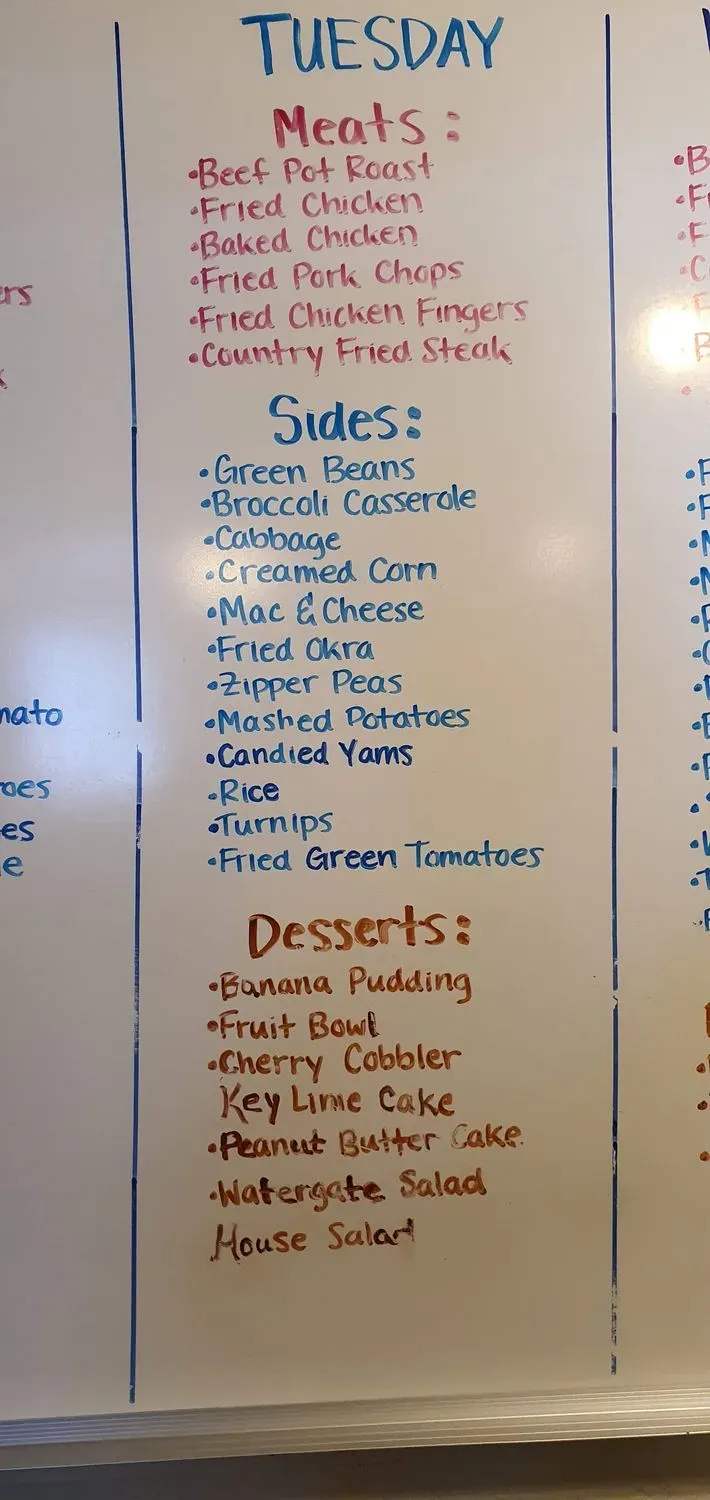 TUESDAY
Meats:
•Beef Pot Roast
•Fried Chicken
•Baked Chicken
•Fried Pork Chops
•Fried Chicken Fingers
•Country Fried Steak
Sides:
•Green Beans
•Broccoli Casserole
•Cabbage
•Creamed Corn
•Mac & Cheese
•Fried Okra
•Zipper Peas
•Mashed Potatoes
•Candied Yams
•Rice
•Turnips
•Fried Green Tomatoes
Desserts:
•Banana Pudding
•Fruit Bowl
•Cherry Cobbler
Key Lime Cake
•Peanut Butter Cake
•Watergate Salad
House Salad